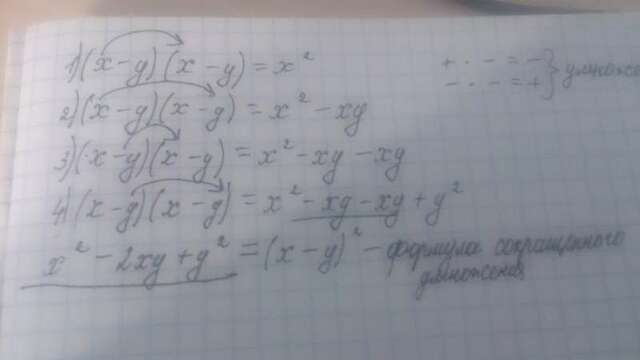 1) (x - y)(x - y) = x²
+ · - = -
- · - = + } умноже
2) (x - y)(x - y) = x² - xy
3) (x - y)(x - y) = x² - xy - xy
4) (x - y)(x - y) = x² - xy - xy + y²
x² - 2xy + y² = (x - y)² - формула сокращенного
умножения